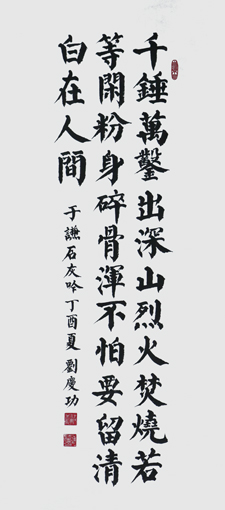 千錘萬鑿出深山烈火焚燒若
等閑粉身碎骨渾不怕要留清
白在人間
于謙石灰吟丁酉夏劉慶功